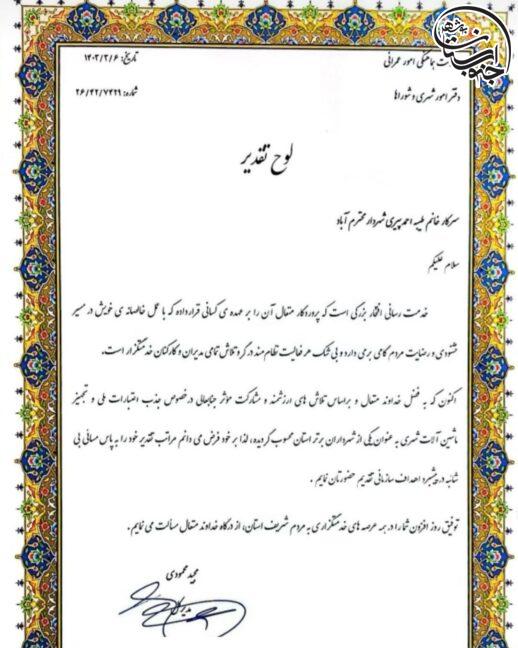 جنوب سیتی
ت هماهنگی امور عمرانی
تاریخ: ۱۴۰۲/۲/۶
دفتر امور شهری و شوراها
شماره: ۲۶/۴۲/۷۳۲۹
لوح تقدیر
سرکار خانم ملیسه احمدپیری شهردار محترم آباد
سلام علیکم
خدمت رسانی افتخار بزرگی است که پروردگار متعال آن را بر عهده ی کسانی قرار داده که با عمل خالصانه ی خویش در مسیر
خشنودی و رضایت مردم گامی برمی دارد و بی شک هر فعالیت نظام مند در گرو تلاش تمامی مدیران و کارکنان خدمتگزار است.
اکنون که به فضل خداوند متعال و براساس تلاش های ارزشمند و مشارکت مؤثر جنابعالی درخصوص جذب اعتبارات ملی و تجهیز
ماشین آلات شهری به عنوان یکی از شهرداران برتر استان محسوب گردیده، لذا بر خود فرض می دانم مراتب تقدیر خود را به پاس مساعی بی
شائبه در پیشبرد اهداف سازمانی تقدیم حضورتان نمایم .
توفیق روز افزون شما را در همه عرصه های خدمتگزاری به مردم شریف استان، از درگاه خداوند متعال مسألت می نمایم .
مجید محمودی
مدیر کل